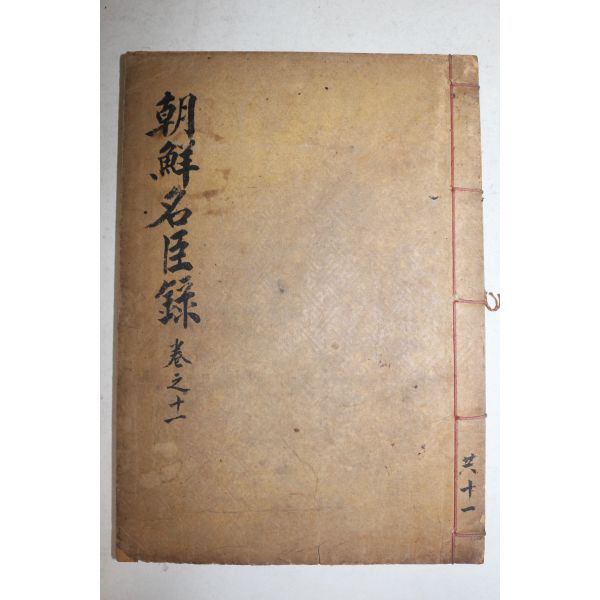 朝鮮名臣錄 卷之十一
共十一